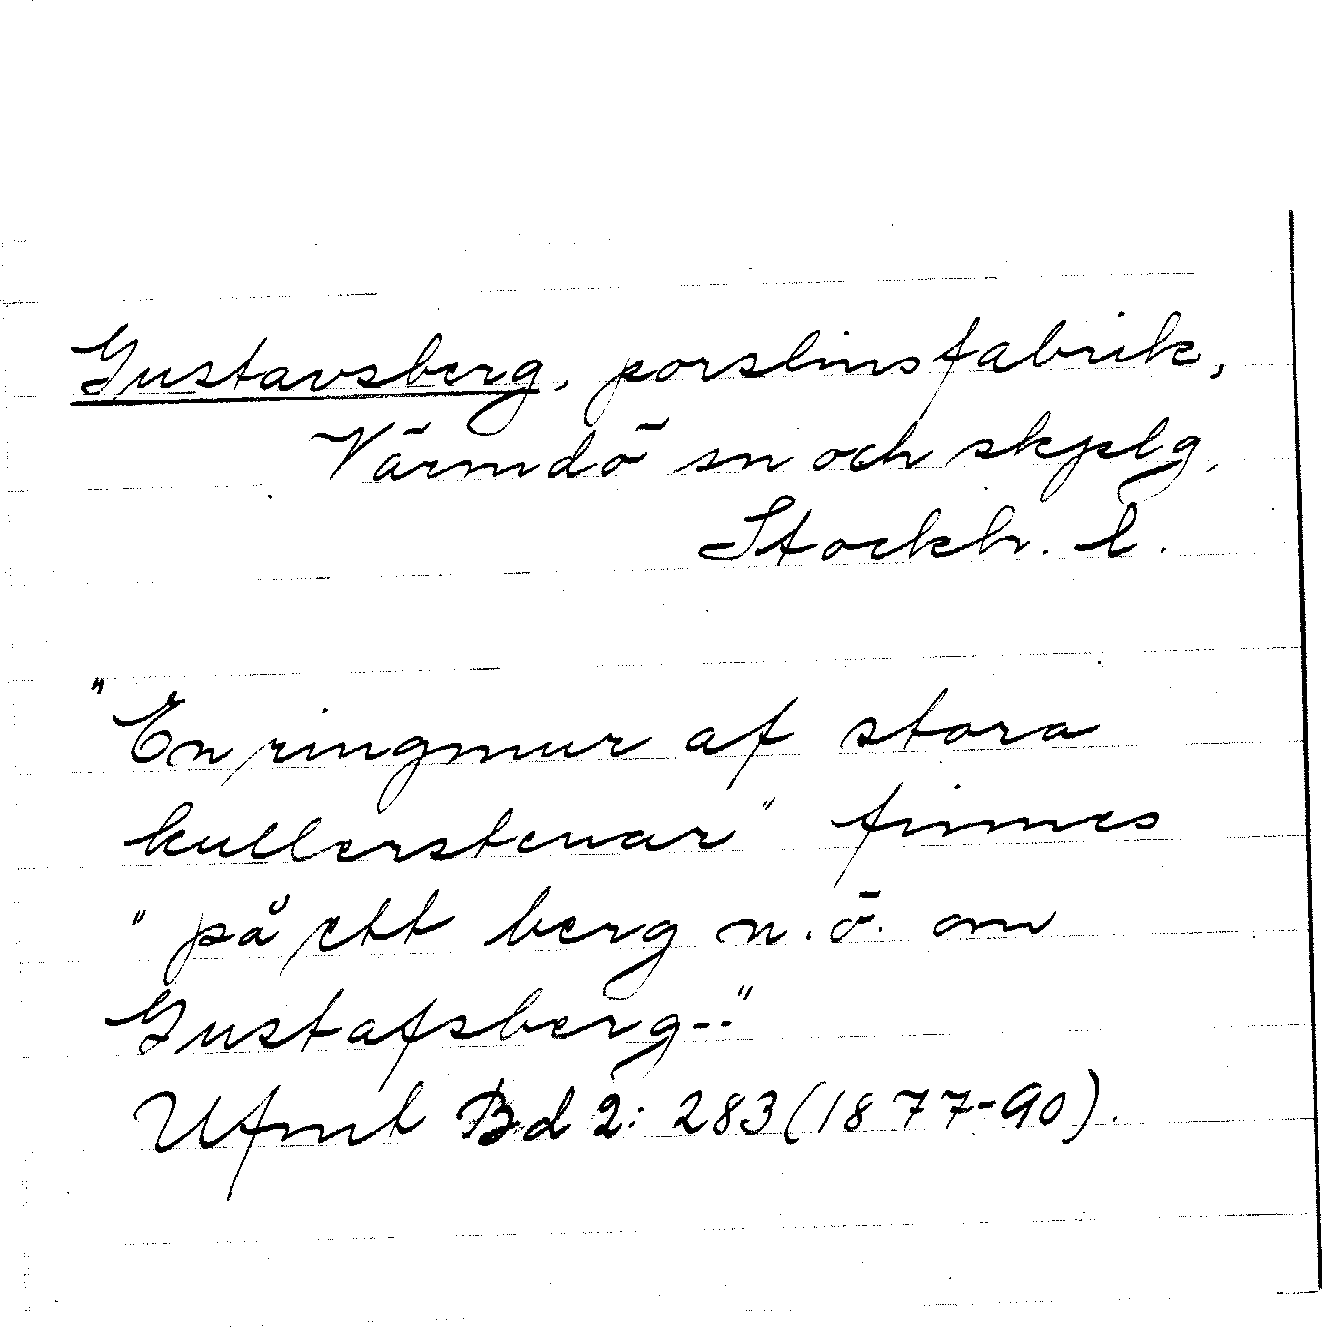 Gustavsberg, porslinsfabrik,
Värmdö sn och skjelg,
Stockh. l.
"En ringmur af stora
kullerstenar" finnes
"på ett berg n.ö. om
Gustafsberg--"
Ufmt Bd 2: 283 (1877-90).